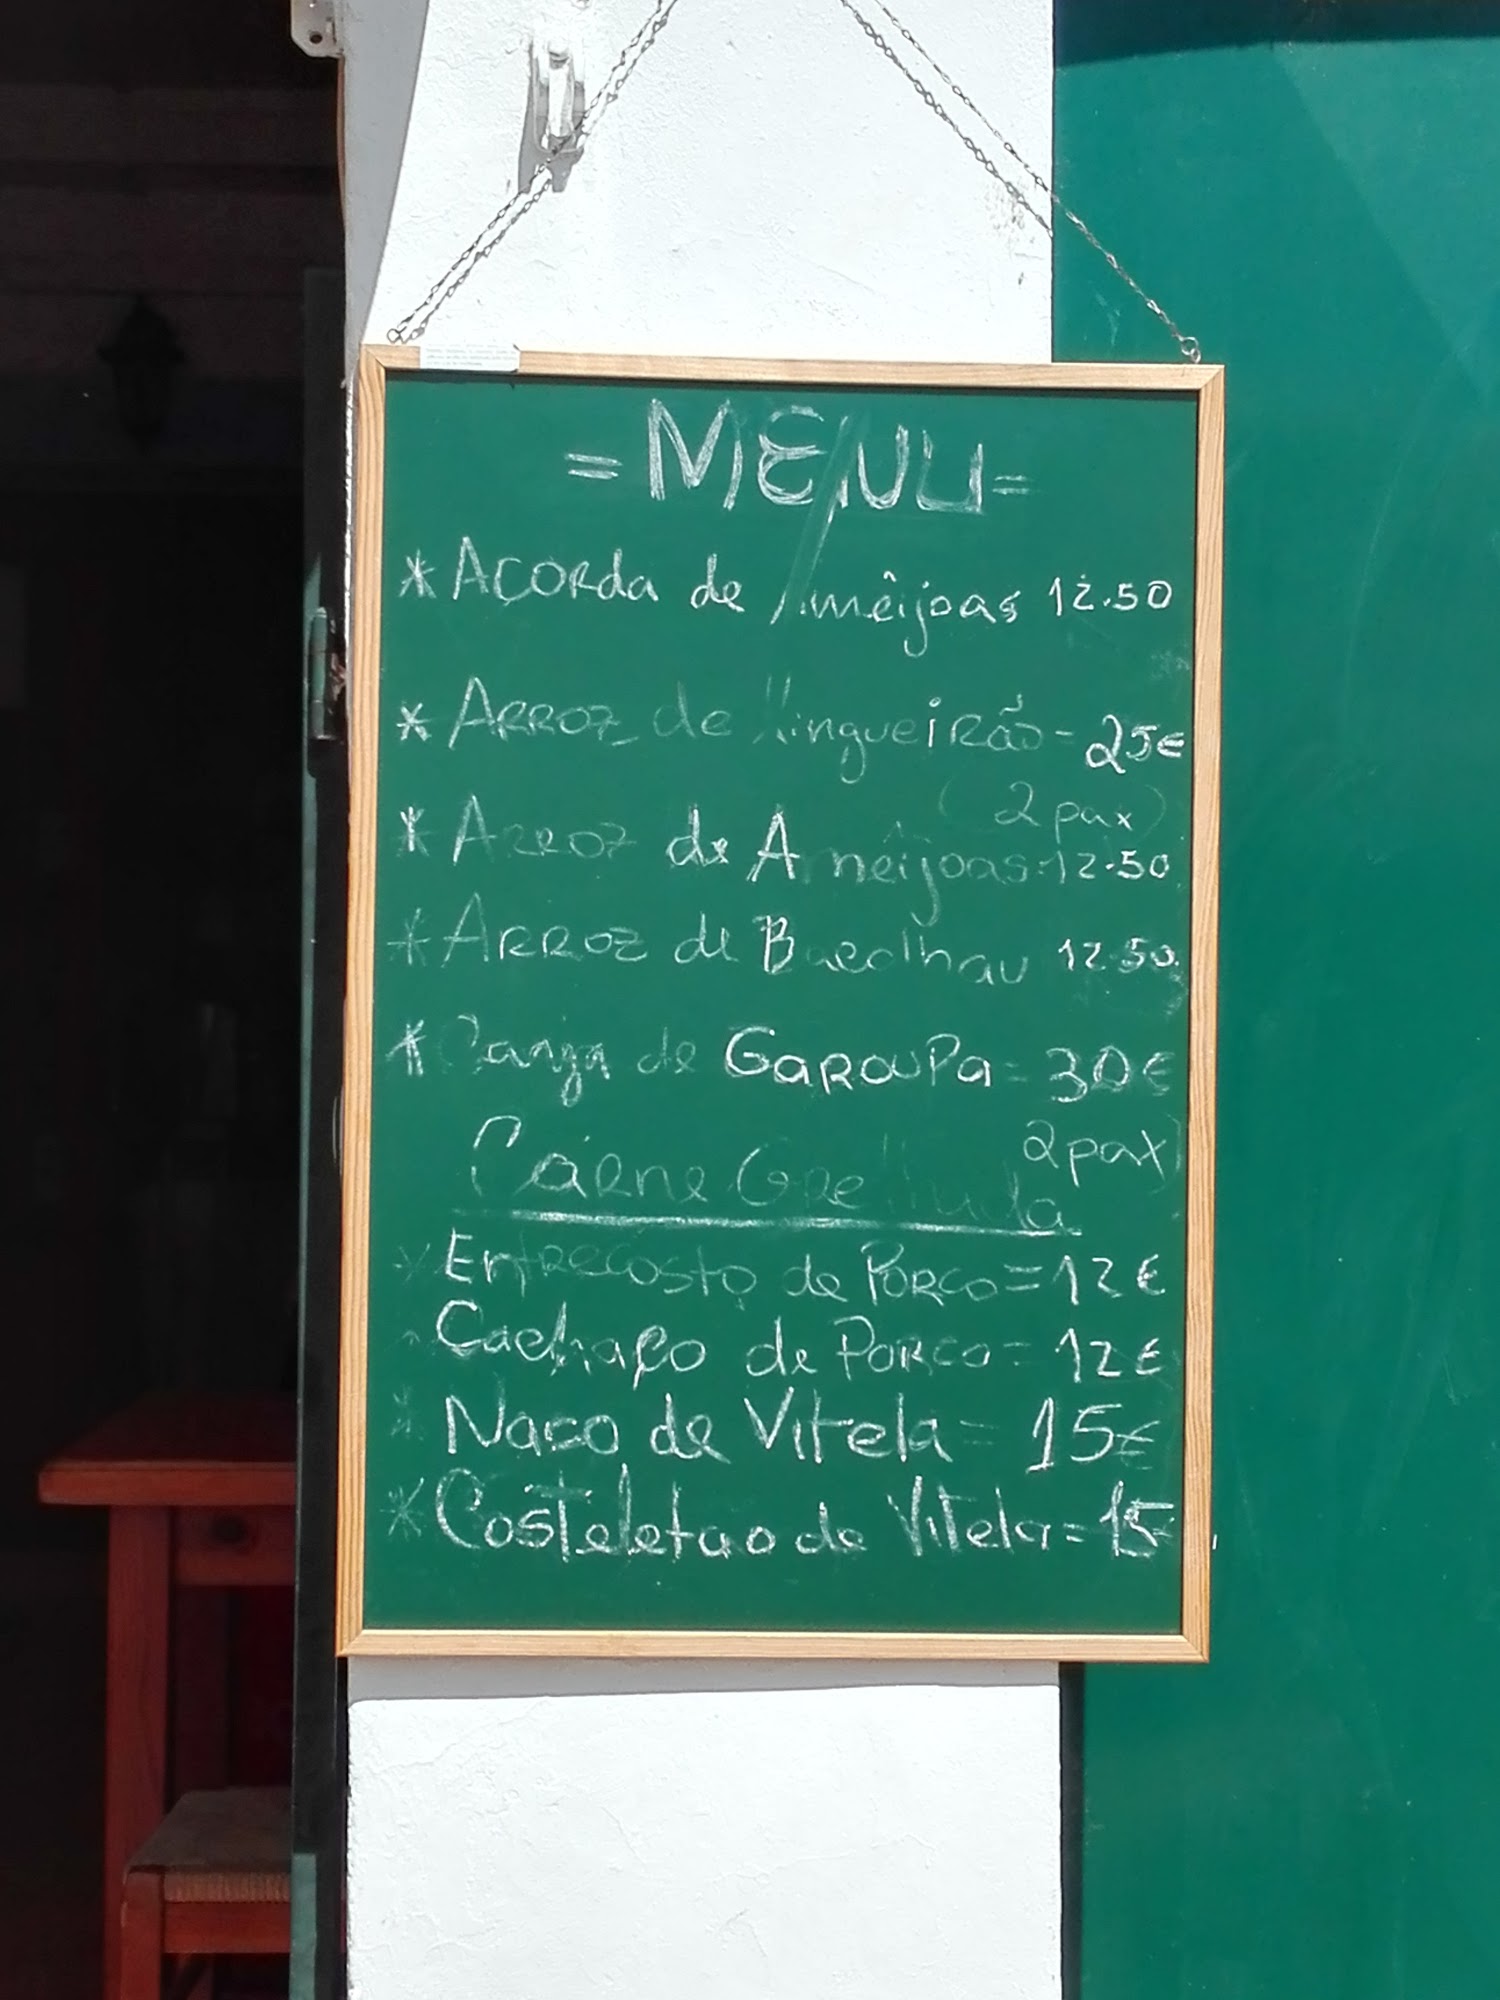 = MENU =
* AÇORda de Amêijoas 12.50
* ARROZ de lingueiRão - 25€
(2 pax)
* ARROZ de Amêijoas 12.50
* ARROZ de Bacalhau 12.50
* Canja de GAROUPa = 30€
2 pax)
CARNE GRelhada
* EntRecosto de PORCO = 12€
Cachaço de PORCO = 12€
* Naco de Vitela = 15€
* Costeletao de Vitela = 15€